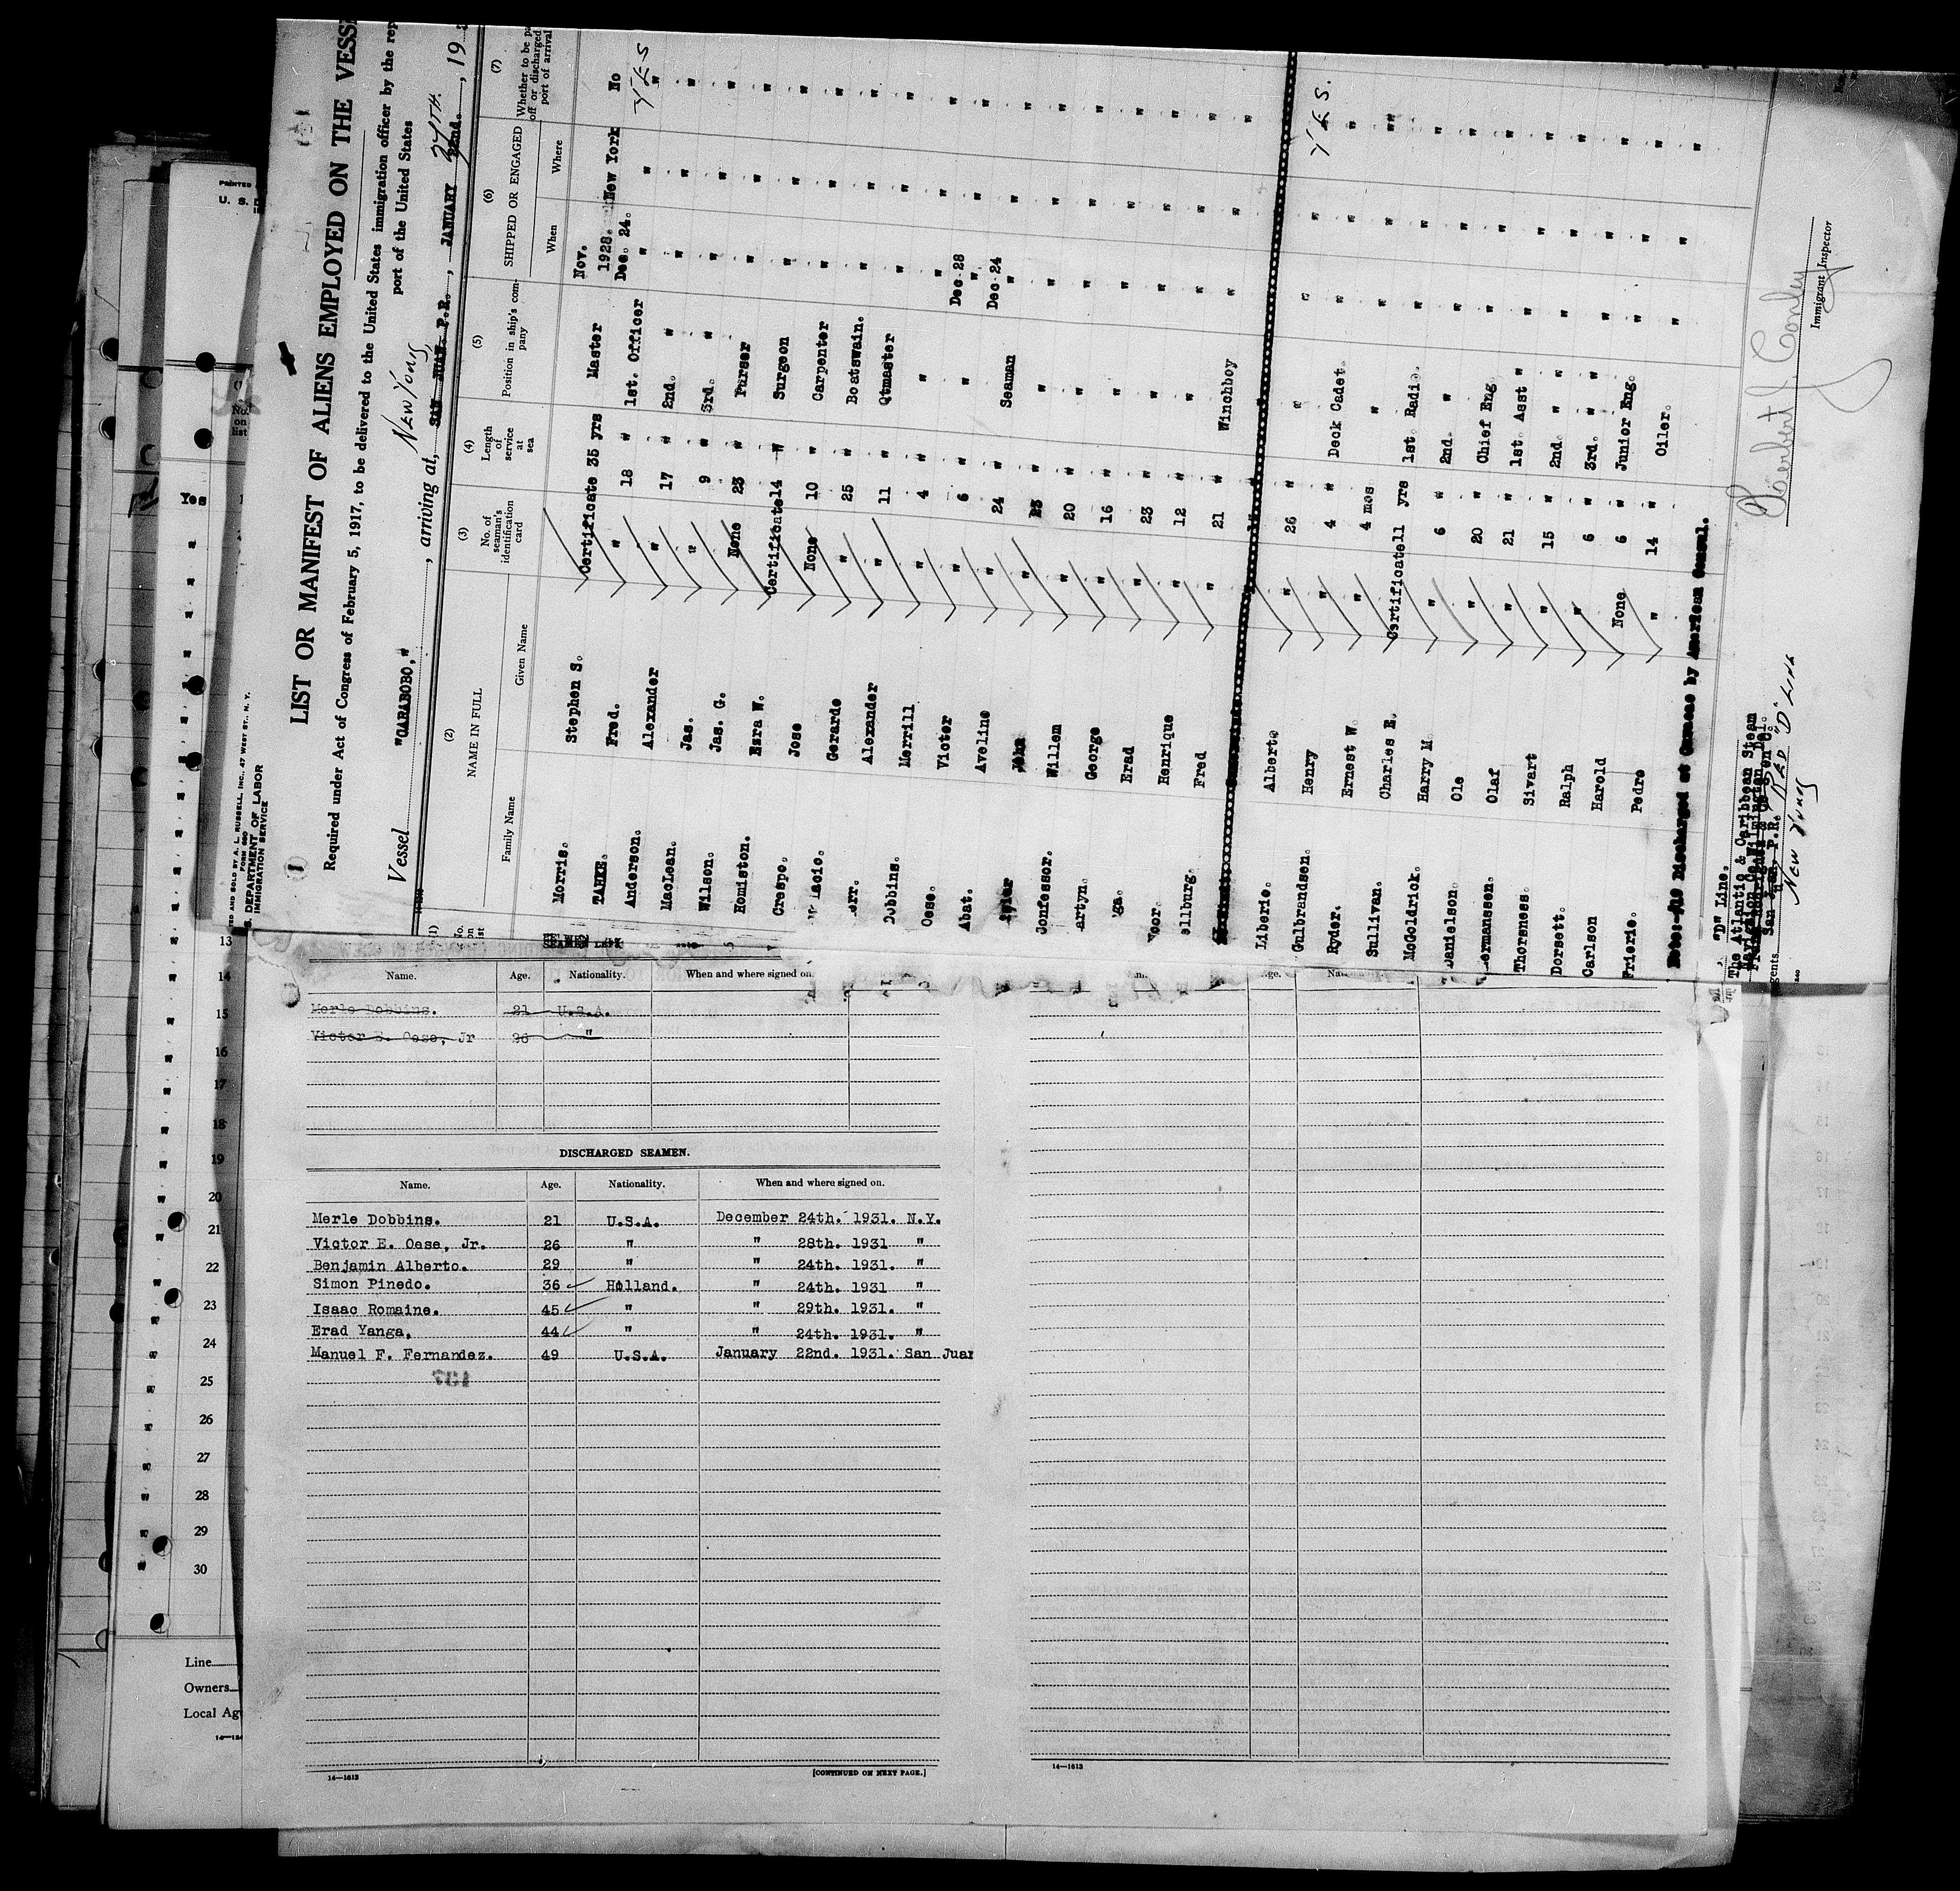 LIST OR MANIFEST OF ALIENS EMPLOYED ON THE VESSE
Required under Act of Congress of February 5, 1917, to be delivered to the United States immigration officer by the rep
port of the United States
Vessel "CARABOBO," , arriving at, New York, SAN JUAN, P.R. , JANUARY 27TH. 22nd. , 19
(1) (2) (3) (4) (5) (6) (7)
NAME IN FULL
Family Name Given Name
No. of seaman's identification card
Length of service at sea
Position in ship's company
SHIPPED OR ENGAGED
When Where
Whether to be pa
off or discharged
port of arrival
Nov.
Morris. Stephen S. Certificate 35 yrs Master 1928. New York No
TANKE. Fred. " 18 " 1st. Officer Dec. 24. " YES
Anderson. Alexander " 17 " 2nd. " " " "
MacLean. Jas. " 9 " 3rd. " " " "
Wilson. Jas. G. None 23 " Purser " " "
Homiston. Ezra W. Certificate 14 " Surgeon " " "
Crespo. Jose None 10 " Carpenter " " "
lacio. Gerarde " 25 " Boatswain. " " "
err. Alexander " 11 " Qtmaster " " "
Dobbins. Merrill " 4 " " " " "
Oese. Victor " 6 " " Dec 28 " "
Abat. Aveline " 24 " Seaman Dec 24 " "
John 23 " " " " "
Confessor. Willem " 20 " " " " "
artyn. George " 16 " " " " "
ga. Erad " 23 " " " " "
oor. Henrique " 12 " " " " "
ellburg. Fred " 21 " Winchboy " " "
Liberie. Alberto " 26 " " " " YES.
Gulbrandsen. Henry " 4 " Deck Cadet. " " "
Ryder. Ernest W. " 4 mos " " " "
Sullivan. Charles E. Certificate 11 yrs 1st. Radio. " " "
McGoldrick. Harry M. " 6 " 2nd. " " " "
Danielson. Ole " 20 " Chief Eng " " "
ermanssen. Olaf " 21 " 1st. Asst " " " "
Thorsness. Sivart " 15 " 2nd. " " " " "
Dorsett. Ralph " 6 " 3rd. " " " " "
Carlson Harold None 6 " Junior Eng. " " "
Frierie. Pedro " 14 " Oiler. " " "
Note:-#19 Discharged at Curacao by American Consul.
"D" Line.
The Atlantic & Caribbean Steam
San Juan, P.R. RED "D" LINE
New York
Herbert Conley
Immigrant Inspector
ED AND SOLD BY A. L. RUSSELL, INC., 47 WEST ST., N. Y.
FORM 680
S. DEPARTMENT OF LABOR
IMMIGRATION SERVICE
PRINTED
U. S.
No.
on
list
Yes
13
14
15
16
17
18
19
20
21
22
23
24
25
26
27
28
29
30
Line
Owners
Local Ag
Name. Age. Nationality. When and where signed on.
Merle Dobbins. 21 U.S.A.
Victor E. Oese, Jr 26 "
DISCHARGED SEAMEN.
Name. Age. Nationality. When and where signed on.
Merle Dobbins. 21 U.S.A. December 24th. 1931. N.Y.
Victor E. Oese, Jr. 26 " " 28th. 1931 "
Benjamin Alberto. 29 " " 24th. 1931. "
Simon Pinedo. 36 Holland. " 24th. 1931 "
Isaac Romaine. 45 " " 29th. 1931. "
Erad Yanga. 44 " " 24th. 1931. "
Manuel F. Fernandez. 49 U.S.A. January 22nd. 1931. San Juan
14—1613 [CONTINUED ON NEXT PAGE.]
14—1613